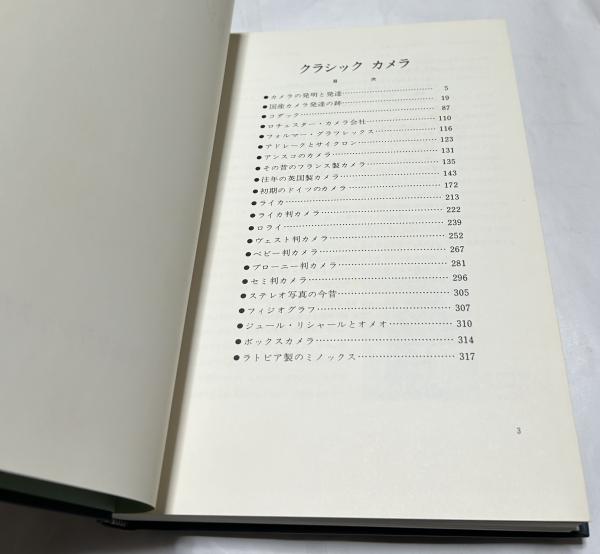 クラシック カメラ
目 次
●カメラの発明と発達……………………………5
●国産カメラ発達の跡……………………………19
●コダック……………………………87
●ロチェスター・カメラ会社……………………………110
●フォルマー・グラフレックス……………………………116
●アドレークとサイクロン……………………………123
●アンスコのカメラ……………………………131
●その昔のフランス製カメラ……………………………135
●往年の英国製カメラ……………………………143
●初期のドイツのカメラ……………………………172
●ライカ……………………………213
●ライカ判カメラ……………………………222
●ロライ……………………………239
●ヴェスト判カメラ……………………………252
●ベビー判カメラ……………………………267
●ブローニー判カメラ……………………………281
●セミ判カメラ……………………………296
●ステレオ写真の今昔……………………………305
●フィジオグラフ……………………………307
●ジュール・リシャールとオメオ……………………………310
●ボックスカメラ……………………………314
●ラトビア製のミノックス……………………………317
3